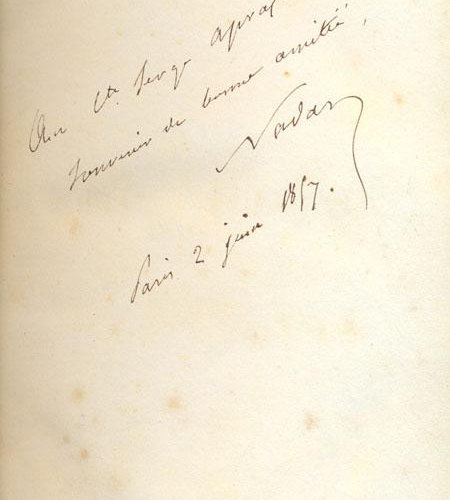 Au Cte Serge Aprax
souvenir de bonne amitié,
Nadar
Paris 2 juin 1857.